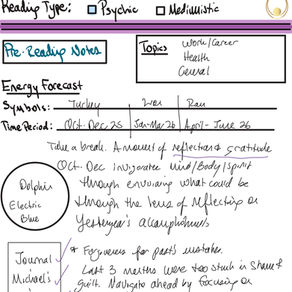 Reading Type: Psychic Mediumistic
Pre-Reading Notes
Topics
Work/Career
Health
General
Energy Forecast
Symbols: Turkey Ram
Time Period: Oct-Dec 25 Jan-Mar 26 April-June 26
Take a break. A moment of reflection & gratitude
Oct-Dec invigorate mind/body/spirit
through envisioning what could be
through the lens of reflecting on
yesteryear's accomplishments
Dolphin
Electric
Blue
Journal
Michael's
* Forgiveness for past mistakes.
Last 3 months were too stuck in shame &
guilt. Navigate ahead by focusing on